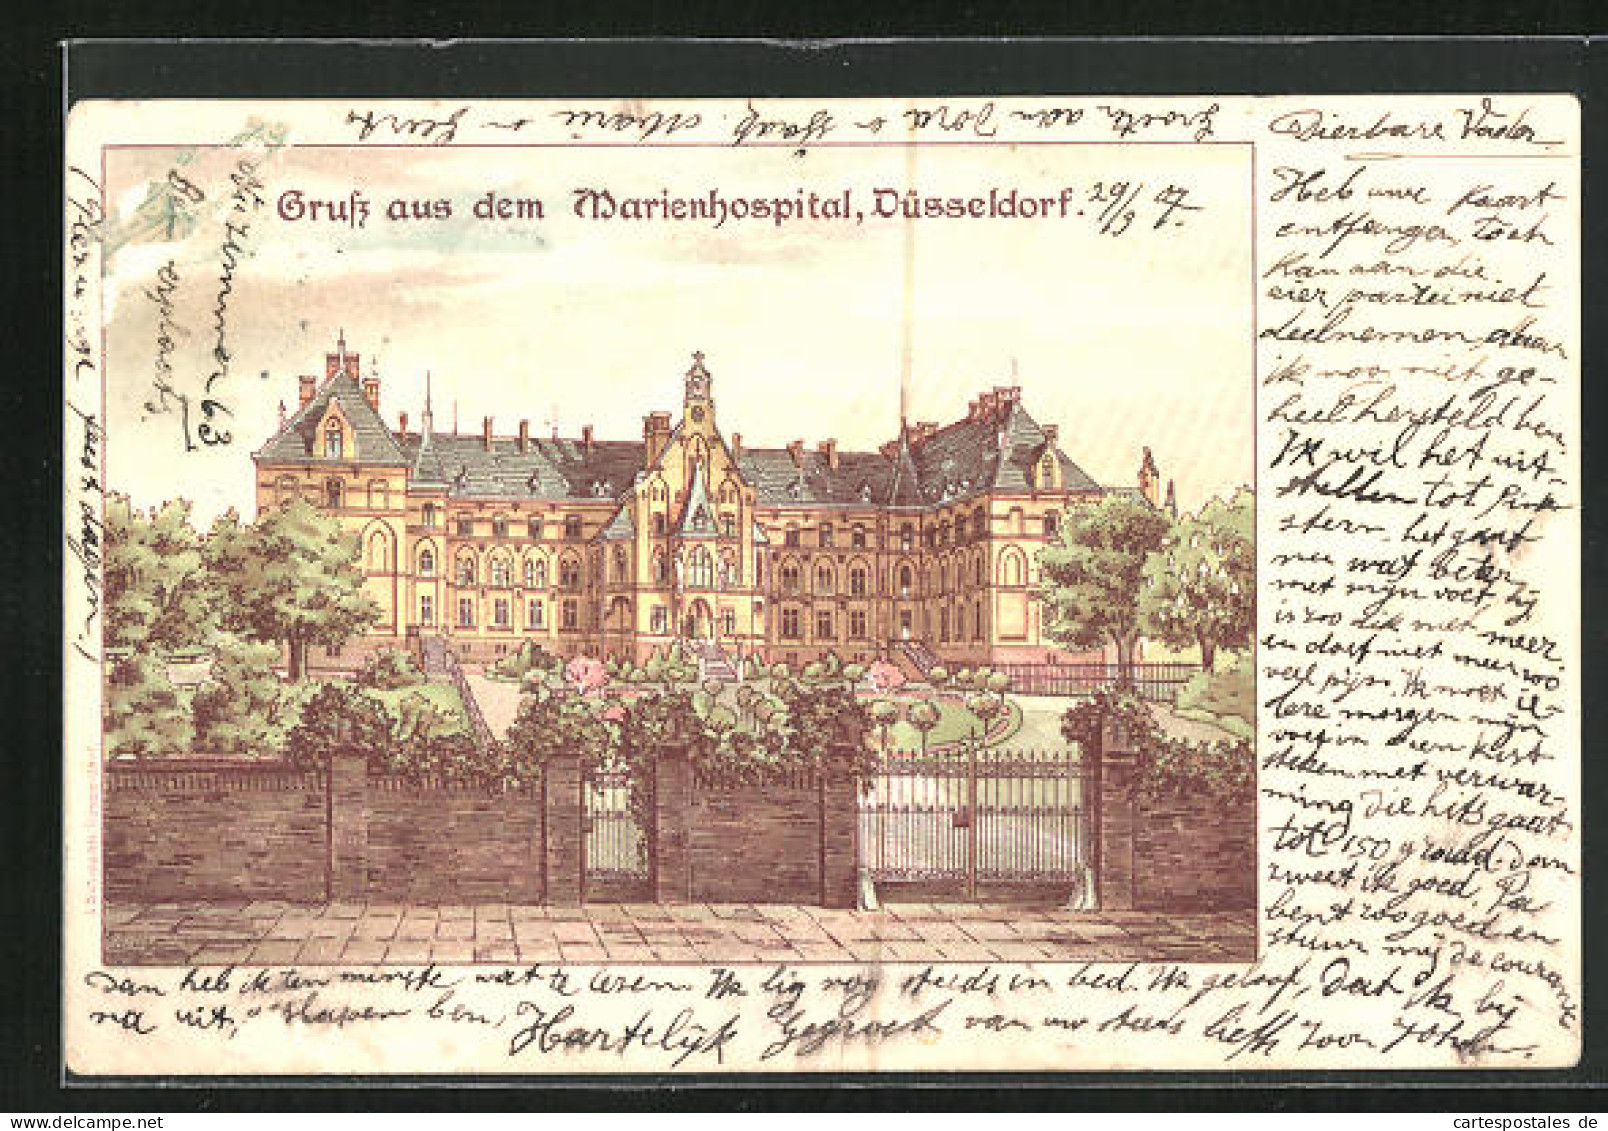 Groeten aan Dora en Jaap. Marie en
Gruß aus dem Marienhospital, Düsseldorf.
29/5 07.
Zimmer 63
Dierbare Vader.
Heb uwe kaart
ontfangen, toch
kan aan die
eier partei niet
deelnemen, daar
ik noo niet ge-
heel hersteld ben.
Ik wil het uit-
stellen tot Pink-
stern. het gaat
nu wat beter
met mijn voet, hij
is zoo dik niet meer.
en dorf niet meer zoo
veel pijn. Ik moet
mijn
voet in een kist
steken met verwar-
ming die hits gaat
tot 150 graad. Dan
zweet ik goed. Pa
bent zoo goed en
stuur mij de courant
dan heb ik ten minste wat te lezen. Ik lig nog steeds in bed. Ik geloof, dat ik bij
na uit, " slapen ben, Hartelijk Gegroet van uw steeds lieff zoon Johan.